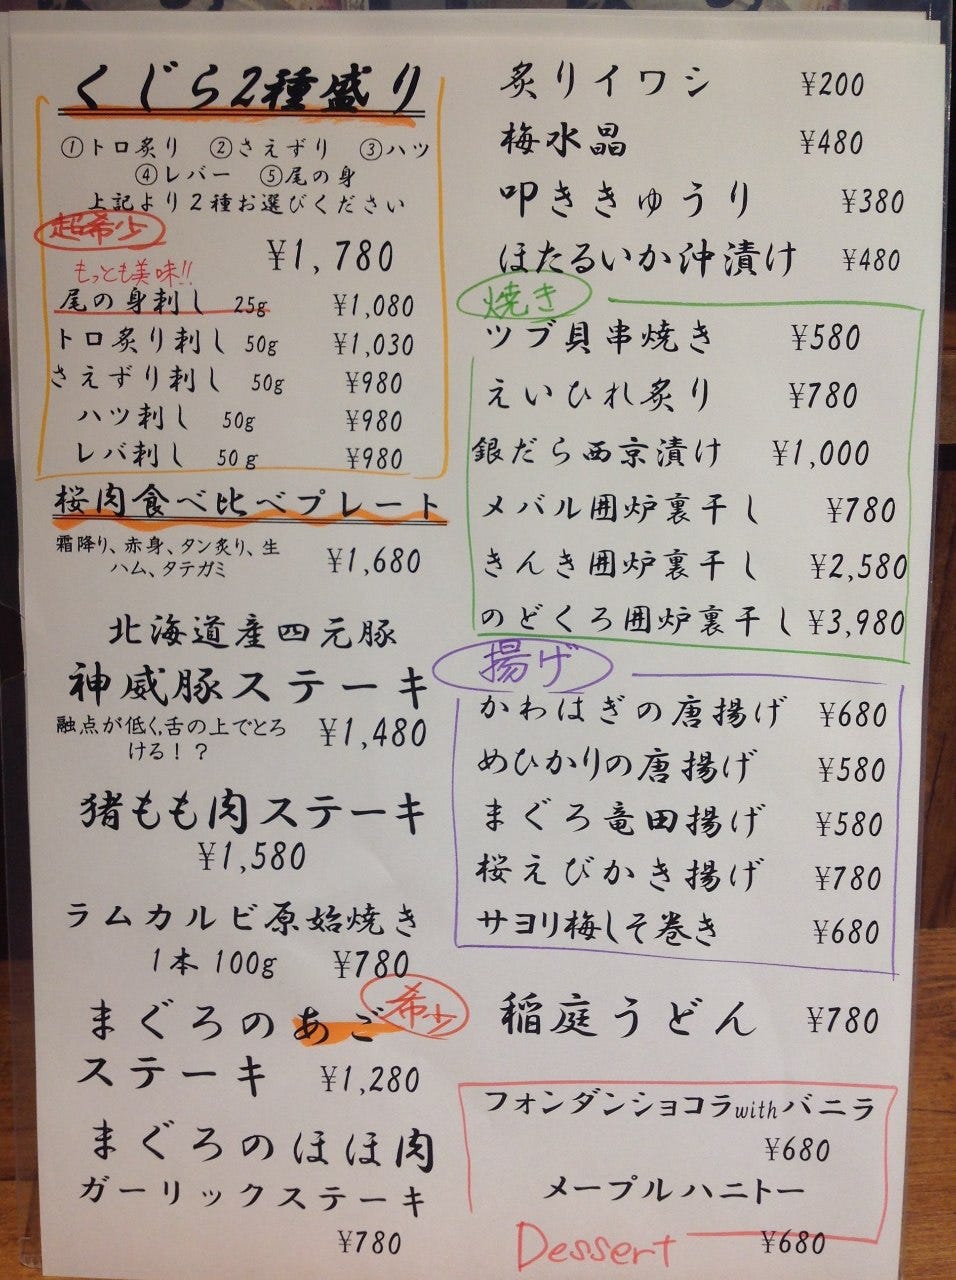 くじら2種盛り
①トロ炙り ②さえずり ③ハツ
④レバー ⑤尾の身
上記より2種お選びください
超希少
¥1,780
もっとも美味!!
尾の身刺し 25g ¥1,080
トロ炙り刺し 50g ¥1,030
さえずり刺し 50g ¥980
ハツ刺し 50g ¥980
レバ刺し 50g ¥980
桜肉食べ比べプレート
霜降り、赤身、タン炙り、生
ハム、タテガミ
¥1,680
北海道産四元豚
神威豚ステーキ
融点が低く、舌の上でとろ
ける!?
¥1,480
猪もも肉ステーキ
¥1,580
ラムカルビ原始焼き
1本100g ¥780
希少
まぐろのあご
ステーキ ¥1,280
まぐろのほほ肉
ガーリックステーキ
¥780
炙りイワシ ¥200
梅水晶 ¥480
叩ききゅうり ¥380
ほたるいか沖漬け ¥480
焼き
ツブ貝串焼き ¥580
えいひれ炙り ¥780
銀だら西京漬け ¥1,000
メバル囲炉裏干し ¥780
きんき囲炉裏干し ¥2,580
のどくろ囲炉裏干し ¥3,980
揚げ
かわはぎの唐揚げ ¥680
めひかりの唐揚げ ¥580
まぐろ竜田揚げ ¥580
桜えびかき揚げ ¥780
サヨリ梅しそ巻き ¥680
稲庭うどん ¥780
フォンダンショコラwithバニラ
¥680
メープルハニトー
¥680
Dessert